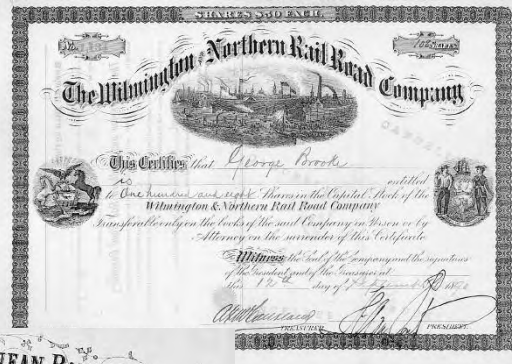 SHARES $50 EACH.
The Wilmington and Northern Rail Road Company
This Certifies that George Brooke
is entitled
to One hundred and Shares in the Capital Stock of the
Wilmington & Northern Rail Road Company
Transferable only on the books of the said Company in Person or by
Attorney on the surrender of this Certificate
Witness the Seal of the Company and the signatures
of the President and of the Treasurer at
this 12th day of
TREASURER PRESIDENT